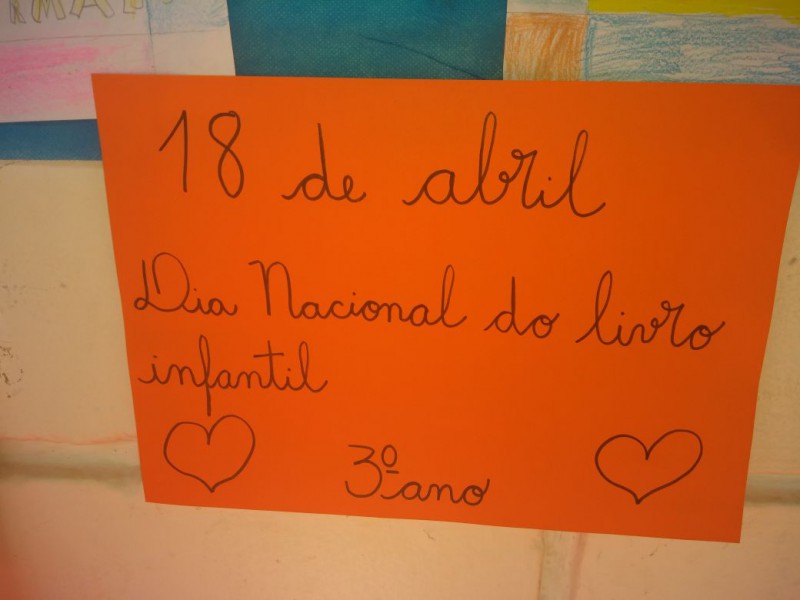 18 de abril
Dia Nacional do livro
infantil
3º ano